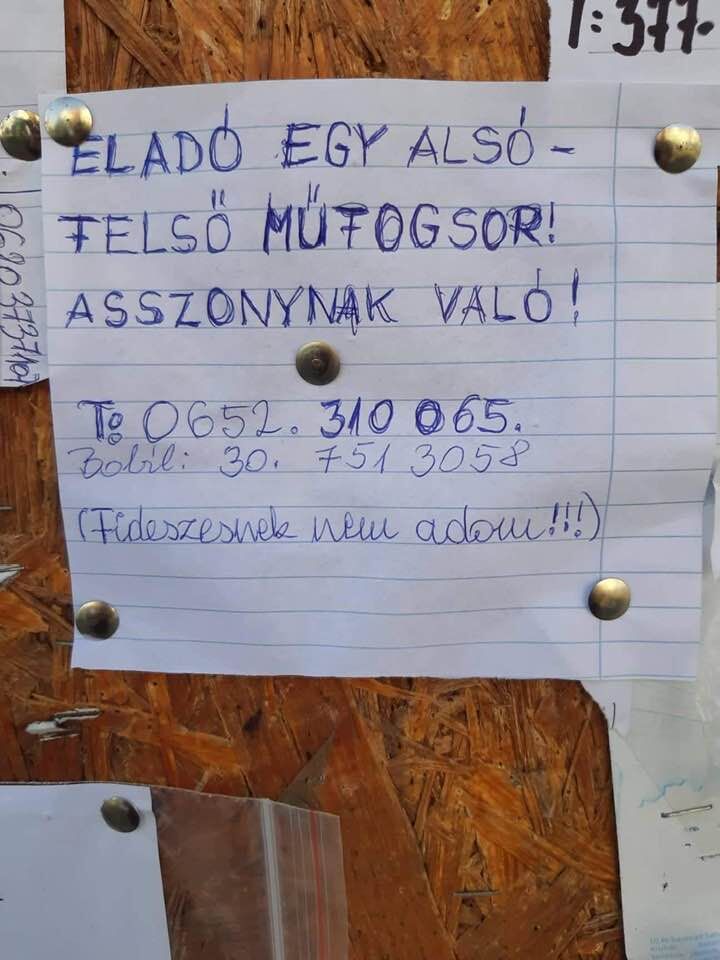 T: 377.
ELADÓ EGY ALSÓ-
FELSŐ MŰFOGSOR!
ASSZONYNAK VALÓ!
T: 0652. 310 065.
Bobil: 30. 751 3058
(Fideszesnek nem adom!!!)